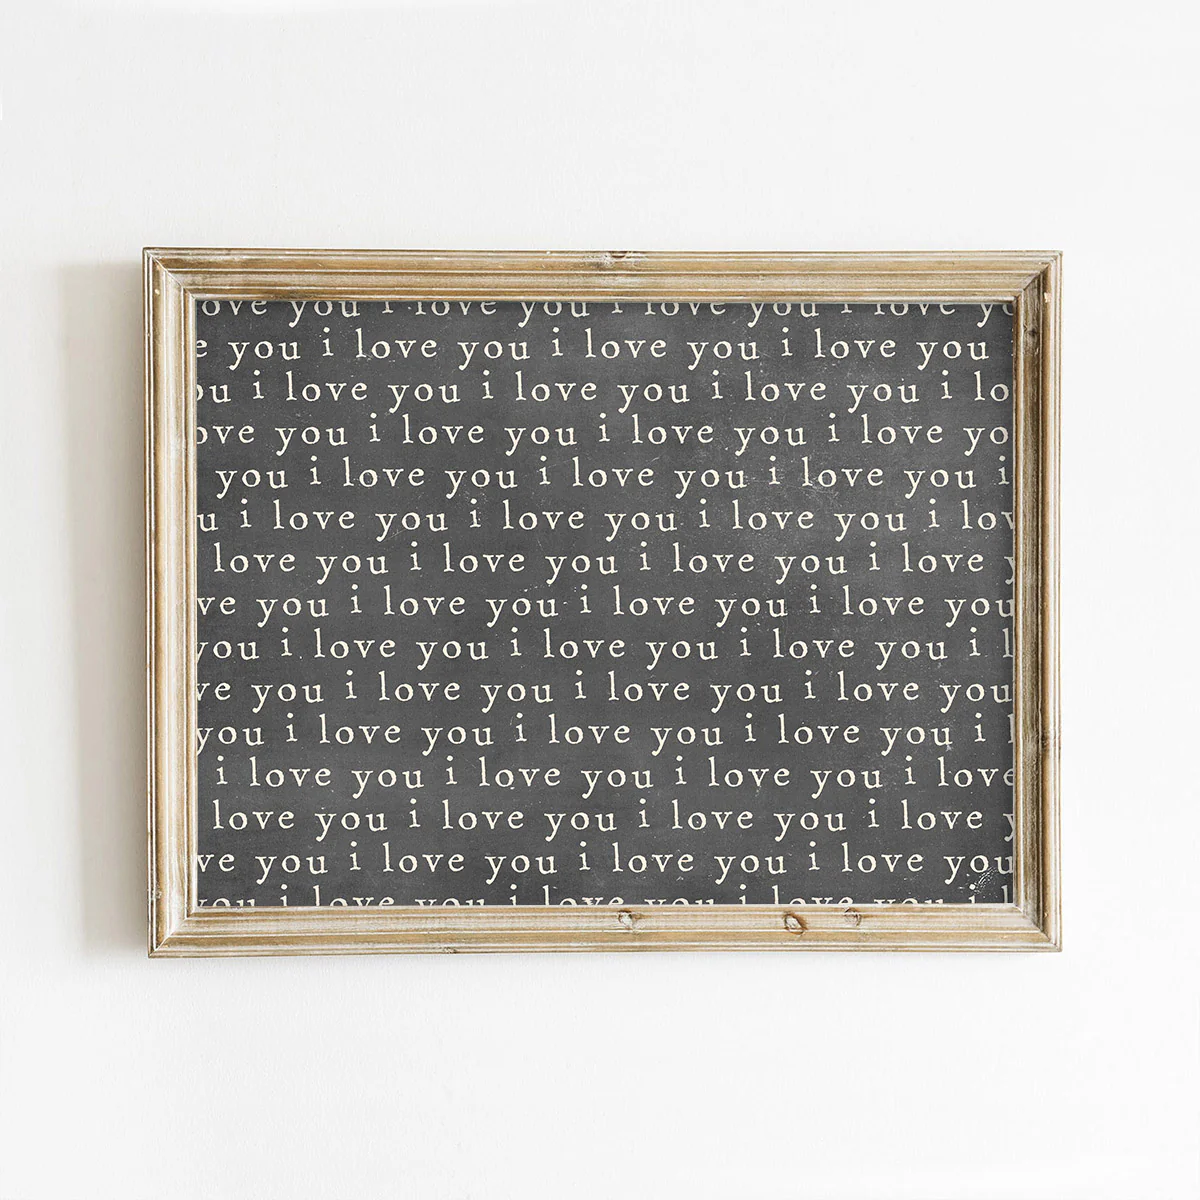 love you i love you i love you i love yo
e you i love you i love you i love you
ou i love you i love you i love you i lo
ove you i love you i love you i love yo
you i love you i love you i love you i
u i love you i love you i love you i lov
love you i love you i love you i love y
ve you i love you i love you i love you
you i love you i love you i love you i l
ve you i love you i love you i love you
you i love you i love you i love you i l
i love you i love you i love you i love
love you i love you i love you i love y
ve you i love you i love you i love you
you i love you i love you i love you i l